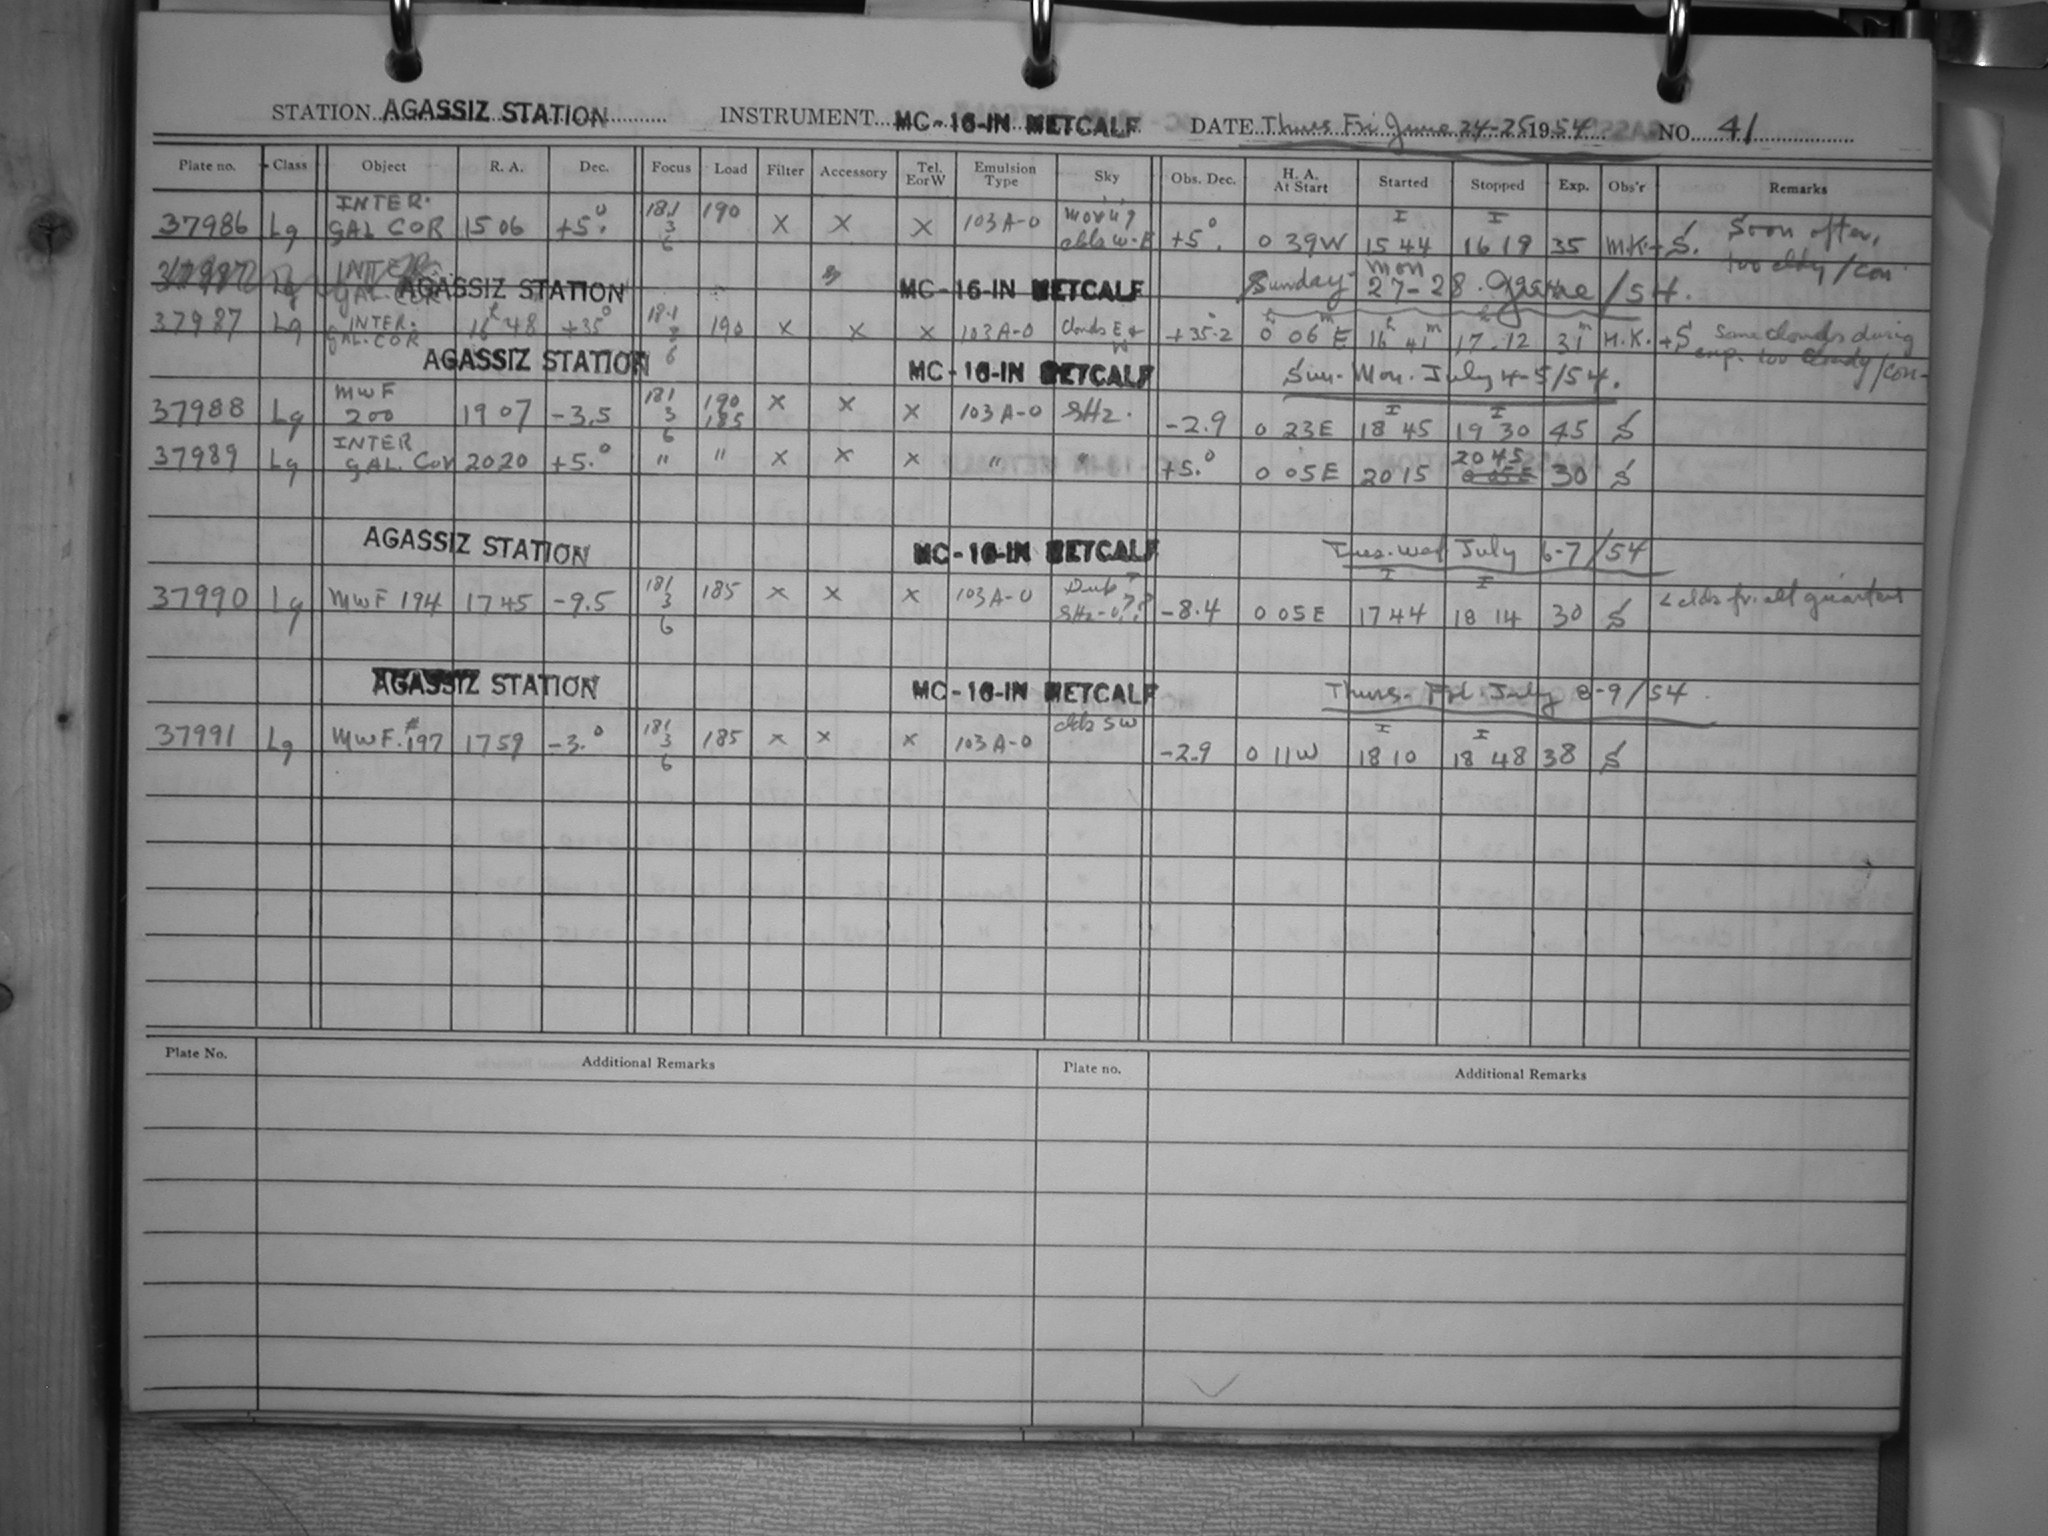 STATION AGASSIZ STATION INSTRUMENT MC-16-IN METCALF DATE Thurs Fri June 24-25 1954 NO. 41
Plate no. Class Object R. A. Dec. Focus Load Filter Accessory Tel. E or W Emulsion Type Sky Obs. Dec. H. A. At Start Started Stopped Exp. Obs'r Remarks
37986 Lg INTER. GAL COR 15 06 +5.° 18.1 3 6 190 X X X 103A-O +5°. 0 39W I 15 44 I 16 19 35 M.K.+S. Soon after, too cldy/con
37987 Lg INTER GAL. COR AGASSIZ STATION MC-16-IN METCALF Sunday-Mon 27-28 June/54.
37987 Lg INTER. GAL. COR 16h 48 +35° 18.1 3 6 190 X X X 103A-O Clouds E + W +35.2 0h 06m E 16h 41m 17h 12 31m M.K.+S Some clouds during exp. too cloudy/con-
AGASSIZ STATION MC-16-IN METCALF Sun-Mon. July 4-5/54.
37988 Lg MWF 200 19 07 -3.5 181 3 6 190 185 X X X 103A-O SHz. -2.9 0 23E I 18 45 I 19 30 45 S
37989 Lg INTER GAL. Cor 20 20 +5.° " " X X X " " +5.° 0 05E 20 15 20 45 30 S
AGASSIZ STATION MC-16-IN METCALF Tues-Wed July 6-7/54
37990 Lg MWF 194 17 45 -9.5 181 3 6 185 X X X 103A-O -8.4 0 05E I 17 44 I 18 14 30 S clds fr. all quarters
AGASSIZ STATION MC-16-IN METCALF Thurs-Fri July 8-9/54
37991 Lg MWF. #197 17 59 -3.° 181 3 6 185 X X X 103A-O clds SW -2.9 0 11W I 18 10 I 18 48 38 S
Plate No. Additional Remarks Plate no. Additional Remarks